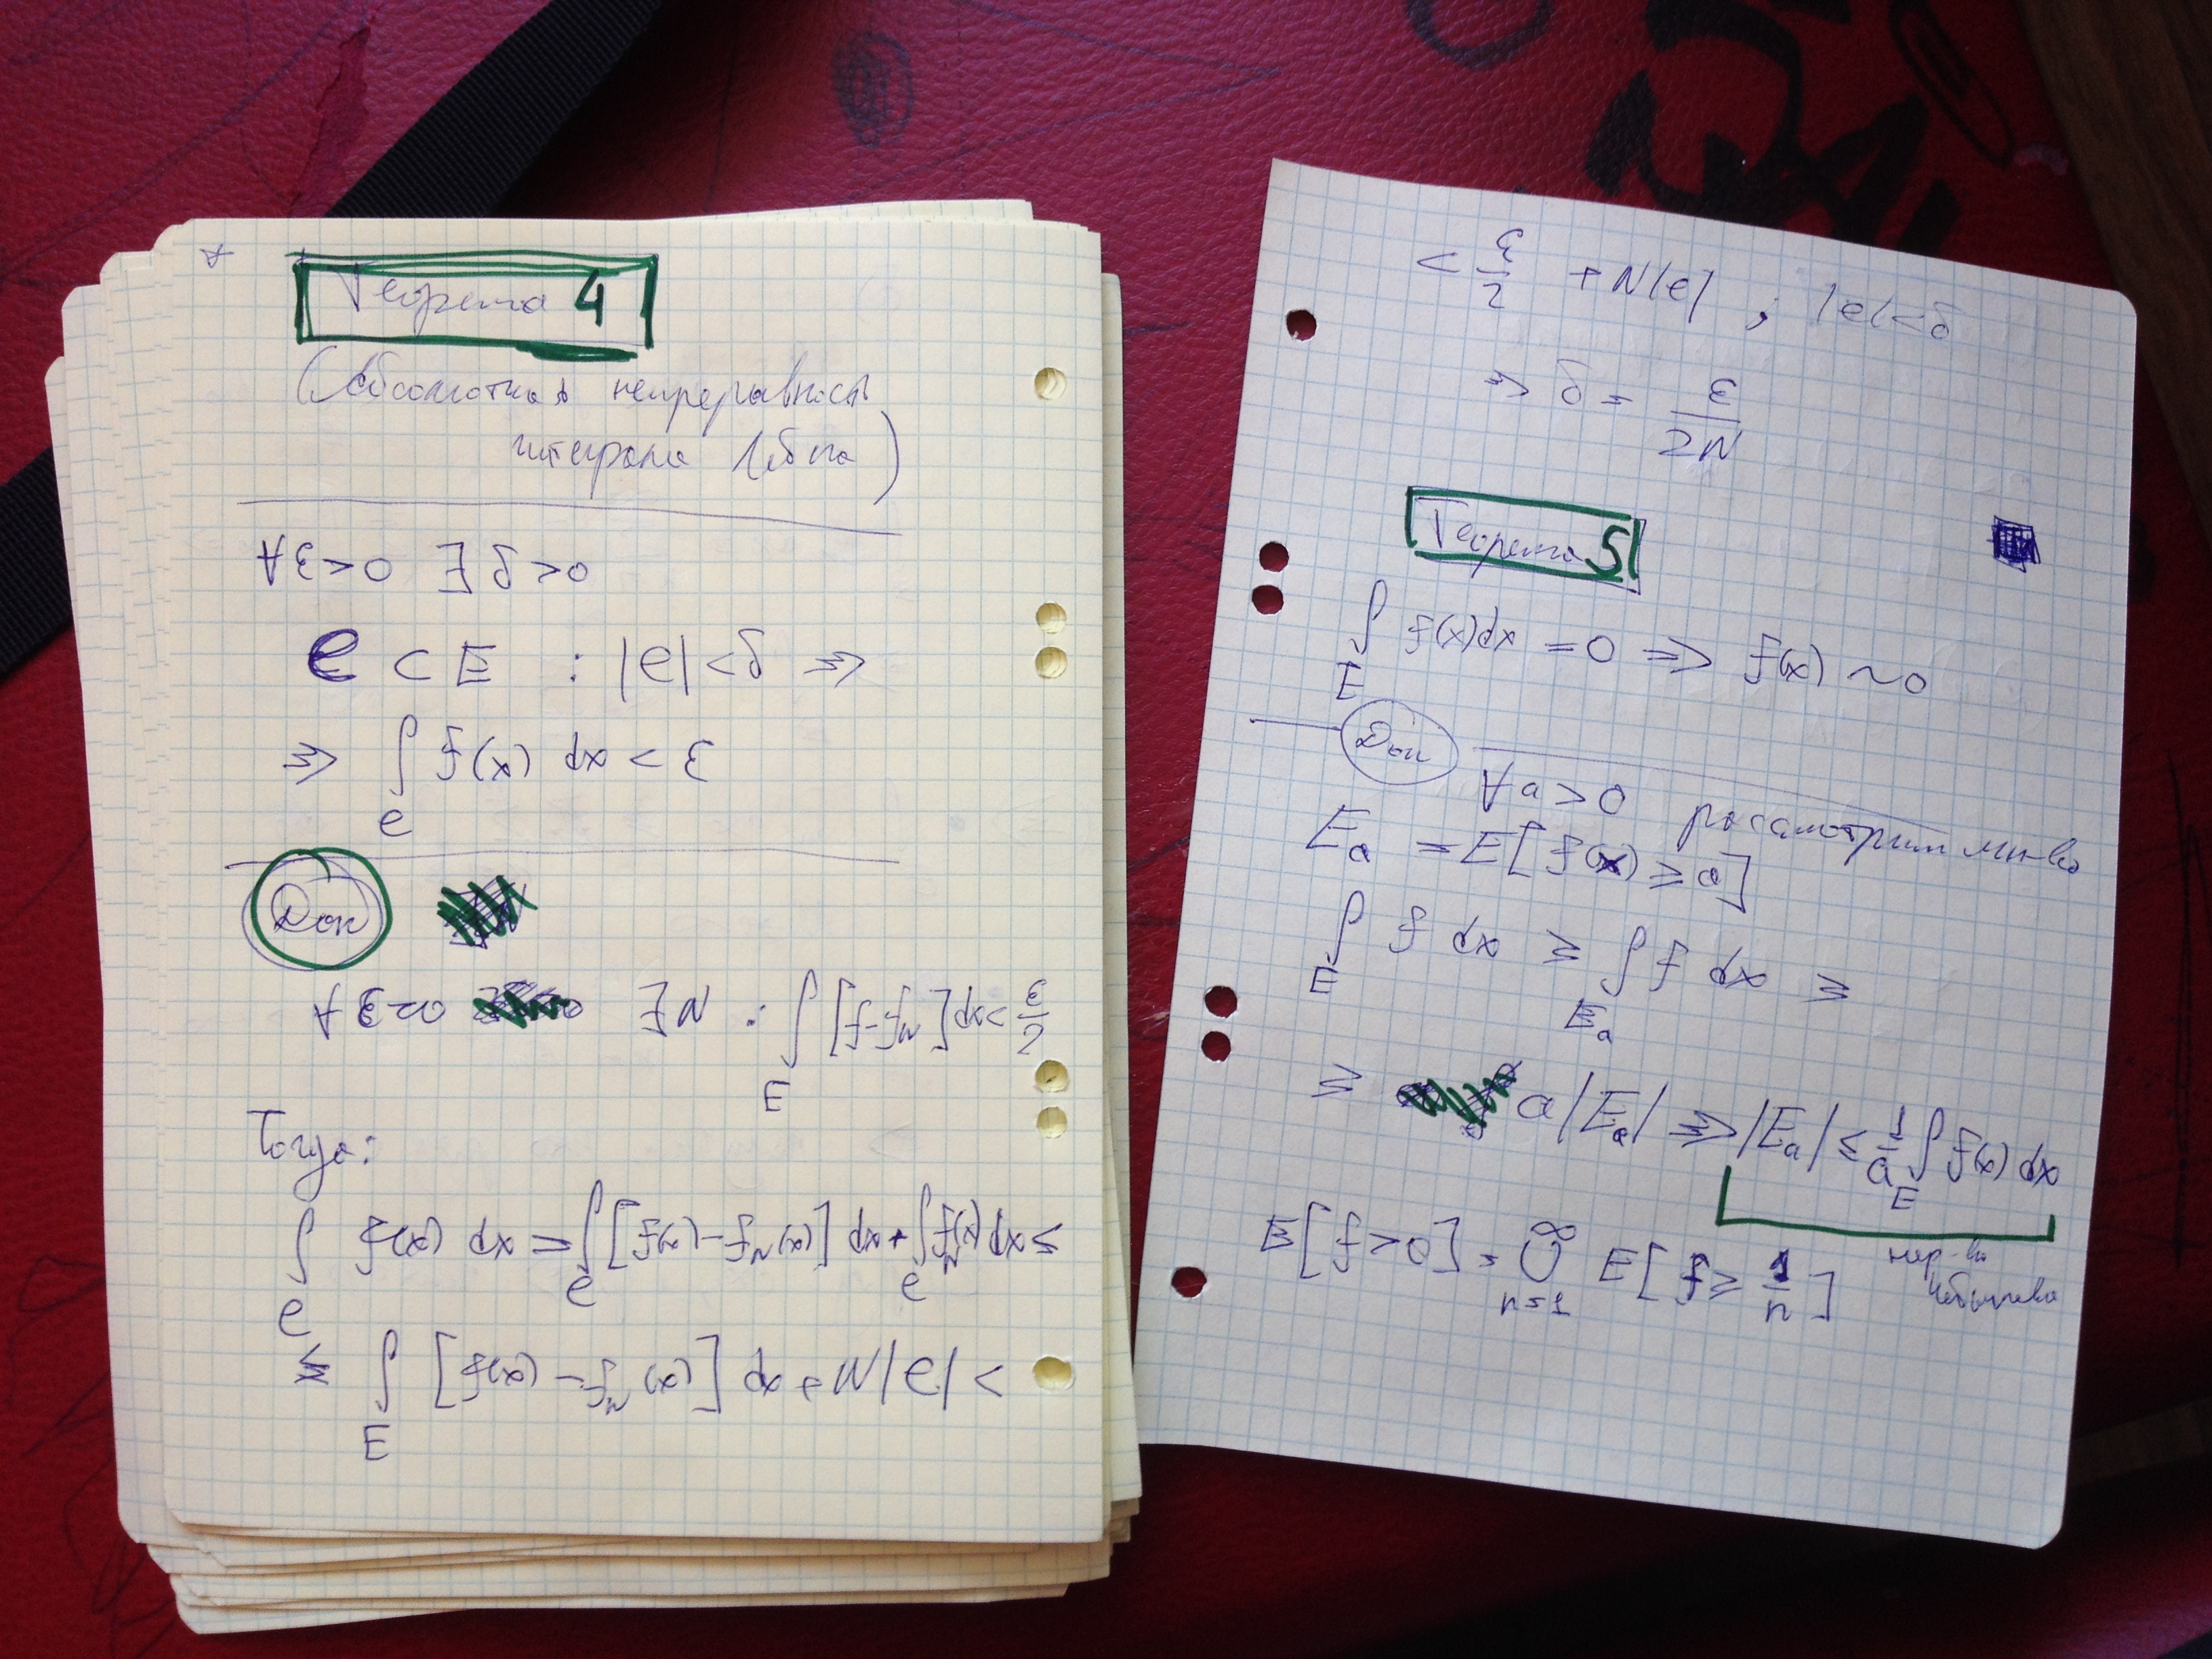 Теорема 4
(Абсолютная непрерывность
интеграла Лебега)
∀ε>0 ∃δ>0
e ⊂ E : |e|<δ ⇒
⇒ ∫_e f(x) dx < ε
Док
∀ε>0 ∃N : ∫_E [f-f_N]dx < ε/2
Тогда:
∫_e f(x) dx = ∫_e [f(x)-f_N(x)] dx + ∫_e f_N(x) dx ≤
≤ ∫_E [f(x)-f_N(x)] dx + N|e| <
< ε/2 + N|e| ; |e|<δ
⇒ δ = ε/2N
Теорема 5
∫_E f(x)dx = 0 ⇒ f(x) ~ 0
Док
∀a>0 рассмотрим мн-во
E_a = E[f(x) ≥ a]
∫_E f dx ≥ ∫_{E_a} f dx ≥
≥ a|E_a| ⇒ |E_a| ≤ 1/a ∫_E f(x) dx
E[f>0] = ⋃_{n=1}^∞ E[f ≥ 1/n]
нер-во
Чебышева